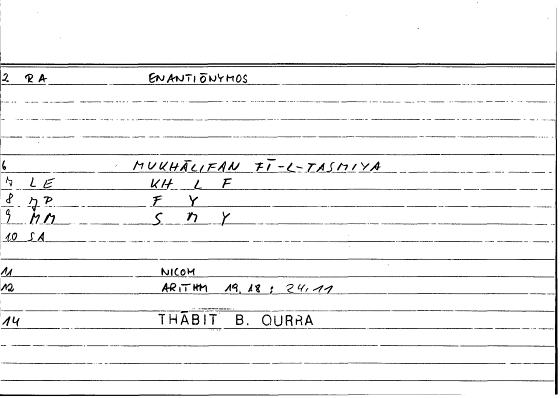 2 RA ENANTIŌNYMOS
6 MUKHĀLIFAN FĪ-L-TASMIYA
7 LE KH L F
8 MP F Y
9 MM S M Y
10 SA
11 NICOM
12 ARITHM 19,18 ; 24,11
14 THĀBIT B. QURRA